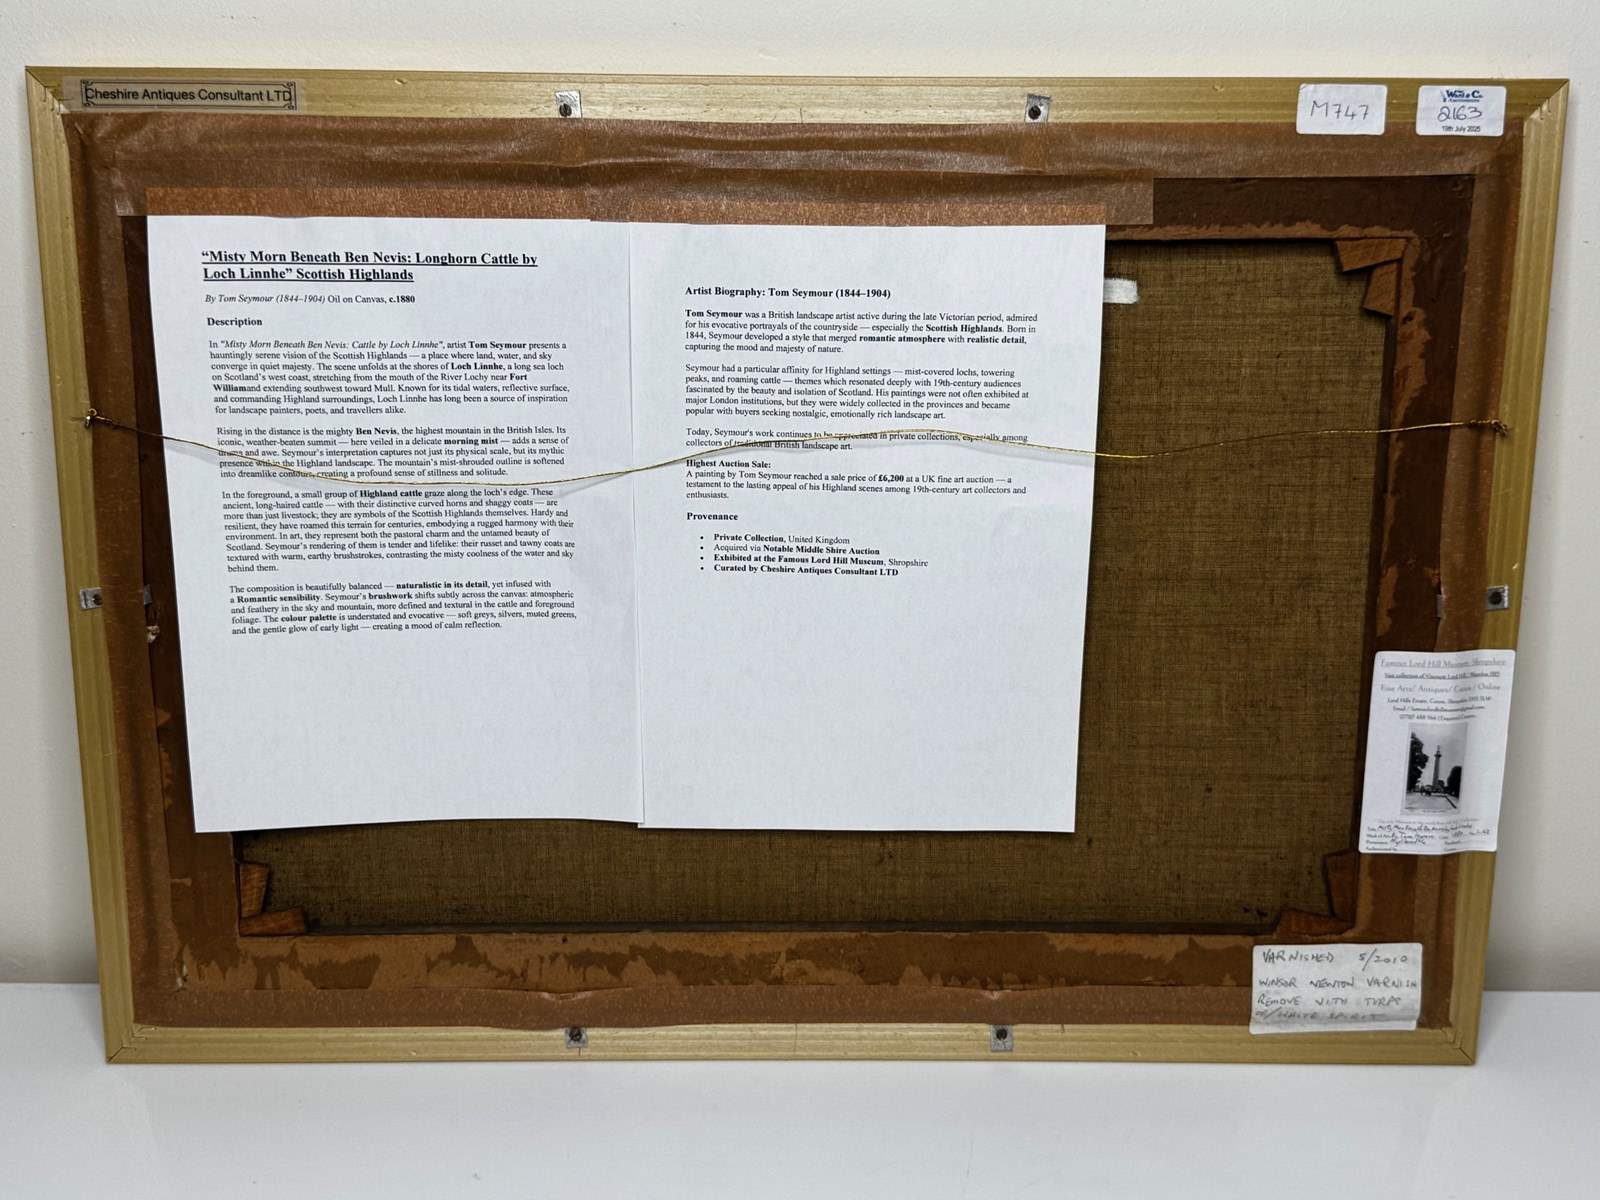 Cheshire Antiques Consultant LTD
M747
2163
19th July 2025
"Misty Morn Beneath Ben Nevis: Longhorn Cattle by
Loch Linnhe" Scottish Highlands
By Tom Seymour (1844–1904) Oil on Canvas, c.1880
Description
In "Misty Morn Beneath Ben Nevis: Cattle by Loch Linnhe", artist Tom Seymour presents a
hauntingly serene vision of the Scottish Highlands — a place where land, water, and sky
converge in quiet majesty. The scene unfolds at the shores of Loch Linnhe, a long sea loch
on Scotland's west coast, stretching from the mouth of the River Lochy near Fort
Williamand extending southwest toward Mull. Known for its tidal waters, reflective surface,
and commanding Highland surroundings, Loch Linnhe has long been a source of inspiration
for landscape painters, poets, and travellers alike.
Rising in the distance is the mighty Ben Nevis, the highest mountain in the British Isles. Its
iconic, weather-beaten summit — here veiled in a delicate morning mist — adds a sense of
drama and awe. Seymour's interpretation captures not just its physical scale, but its mythic
presence within the Highland landscape. The mountain's mist-shrouded outline is softened
into dreamlike contours, creating a profound sense of stillness and solitude.
In the foreground, a small group of Highland cattle graze along the loch's edge. These
ancient, long-haired cattle — with their distinctive curved horns and shaggy coats — are
more than just livestock; they are symbols of the Scottish Highlands themselves. Hardy and
resilient, they have roamed this terrain for centuries, embodying a rugged harmony with their
environment. In art, they represent both the pastoral charm and the untamed beauty of
Scotland. Seymour's rendering of them is tender and lifelike: their russet and tawny coats are
textured with warm, earthy brushstrokes, contrasting the misty coolness of the water and sky
behind them.
The composition is beautifully balanced — naturalistic in its detail, yet infused with
a Romantic sensibility. Seymour's brushwork shifts subtly across the canvas: atmospheric
and feathery in the sky and mountain, more defined and textural in the cattle and foreground
foliage. The colour palette is understated and evocative — soft greys, silvers, muted greens,
and the gentle glow of early light — creating a mood of calm reflection.
Artist Biography: Tom Seymour (1844–1904)
Tom Seymour was a British landscape artist active during the late Victorian period, admired
for his evocative portrayals of the countryside — especially the Scottish Highlands. Born in
1844, Seymour developed a style that merged romantic atmosphere with realistic detail,
capturing the mood and majesty of nature.
Seymour had a particular affinity for Highland settings — mist-covered lochs, towering
peaks, and roaming cattle — themes which resonated deeply with 19th-century audiences
fascinated by the beauty and isolation of Scotland. His paintings were not often exhibited at
major London institutions, but they were widely collected in the provinces and became
popular with buyers seeking nostalgic, emotionally rich landscape art.
Today, Seymour's work continues to be appreciated in private collections, especially among
collectors of traditional British landscape art.
Highest Auction Sale:
A painting by Tom Seymour reached a sale price of £6,200 at a UK fine art auction — a
testament to the lasting appeal of his Highland scenes among 19th-century art collectors and
enthusiasts.
Provenance
• Private Collection, United Kingdom
• Acquired via Notable Middle Shire Auction
• Exhibited at the Famous Lord Hill Museum, Shropshire
• Curated by Cheshire Antiques Consultant LTD
Famous Lord Hill Museum Shropshire
Fine Arts/ Antiques/ Coins / Online
VARNISHED 5/2010
WINSOR NEWTON VARNISH
REMOVE WITH TURPS
OR/WHITE SPIRIT